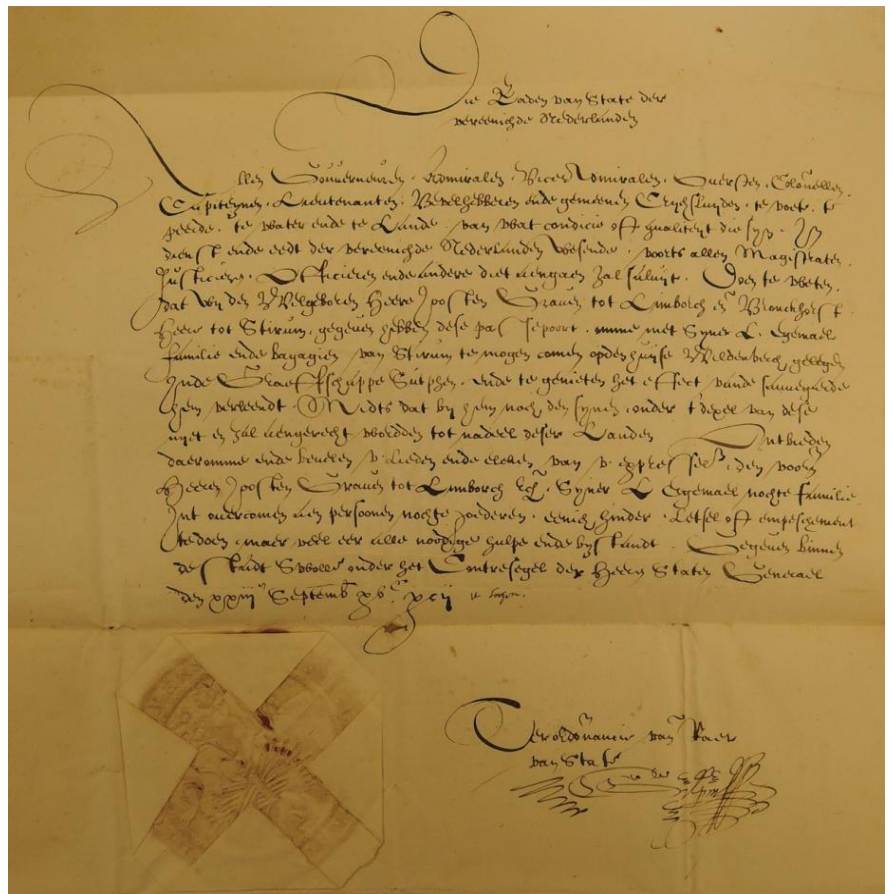 Die Raden van State der
vereenichde Nederlanden
Allen Gouverneuren, Admiralen, Vice Admiralen, Oversten, Colonnellen,
Capiteynen, Lieutenanten, Bevelhebberen ende gemeenen Crychsluyden, te voet, te
peerde, te water ende te Lande, van wat condicie oft qualiteyt die syn, In
dienst ende eedt der vereenichde Nederlanden wesende, voorts allen Magistraten,
Justicieren, Officieren ende andere diet aengaen zal saluyt. Doen te weten,
dat wy den Welgeboren Heere Joosten Graven tot Limborch en Bronckhorst
Heer tot Stirum, gegeven hebben dese passepoort, omme met Syner L. Egemael
familie ende bagagien van Stirum te mogen comen opden huyse Wildenberch, gelegen
Inde Graeffschappe Sutphen, ende te genieten het effect vande sauvegarde
hem verleendt. Midts dat by hem noch den synen onder t'dexel van dese
nyet en zal aengerecht worden tot nadeel deser Landen Ontbieden
daeromme ende bevelen v. Lieden ende elcken van v. den voors
Heeren Joosten Graven tot Limborch Syner L Egemael nochte familie
Int overcomen aen persoonen nochte goederen, eenich hinder, Letsel oft empeschement
te doen, maer veel eer alle noodige hulpe ende bystandt. Gegeven binnen
de stadt Swolle onder het Contresegel der Heeren Staten Generael
den xxiij Septemb xvc xcij
Ter ordonnancie van Raet
van State